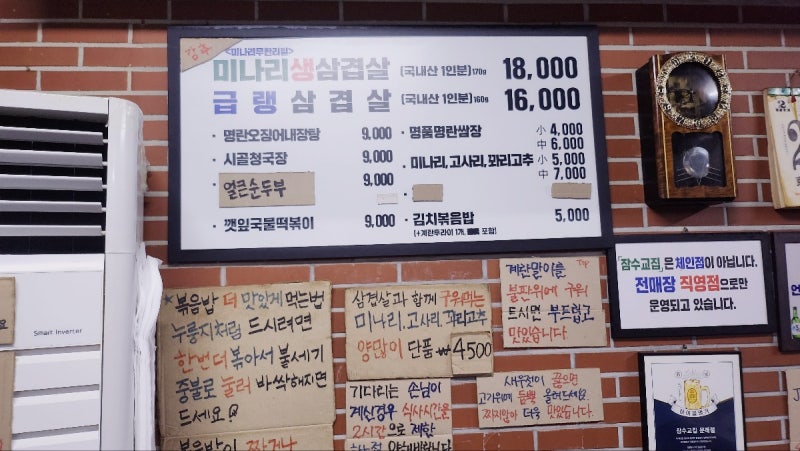 강추
<미나리무한리필>
미나리생삼겹살 (국내산 1인분)170g 18,000
급랭삼겹살 (국내산 1인분)160g 16,000
· 명란오징어내장탕 9,000
· 시골청국장 9,000
· 얼큰순두부 9,000
· 깻잎국물떡볶이 9,000
· 명품명란쌈장 小 4,000
中 6,000
· 미나리,고사리,꽈리고추 小 5,000
中 7,000
· 김치볶음밥 5,000
(+계란후라이 1개, 포함!)
「잠수교집」은 체인점이 아닙니다.
전매장 직영점으로만
운영되고 있습니다.
Smart Inverter
*볶음밥 더 맛있게 먹는법
누룽지처럼 드시려면
한번더 볶아서 불세기
중불로 눌러 바싹해지면
드세요!
볶음밥이
삼겹살과 함께 구워먹는
미나리.고사리.꽈리고추
양많이 단품 ₩4500
계란말이를 Tip
불판위에 구워
드시면 부드럽고
맛있습니다.
기다리는 손님이
계신경우 식사시간을
2시간으로 제한
새우젓이 끓으면
고기위에 듬뿍 올려드세요.
찍지말아 더욱 맛있습니다.
잠수교집